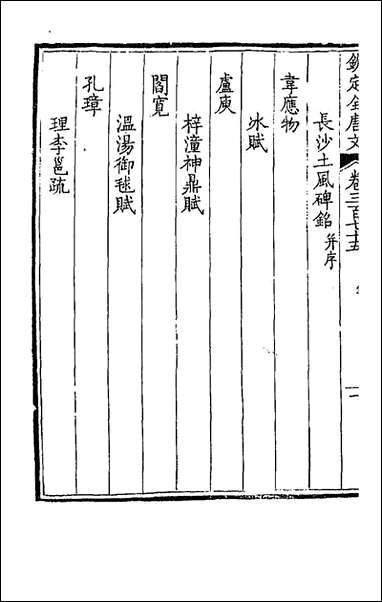 欽定全唐文 卷三百七十五 一
長沙土風碑銘并序
韋應物
冰賦
盧庾
梓潼神鼎賦
閻寬
溫湯御毬賦
孔璋
理李邕疏